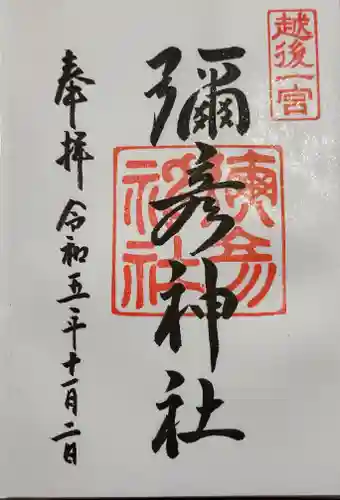 越後一宮
彌彦神社
奉拝
令和五年十一月二日